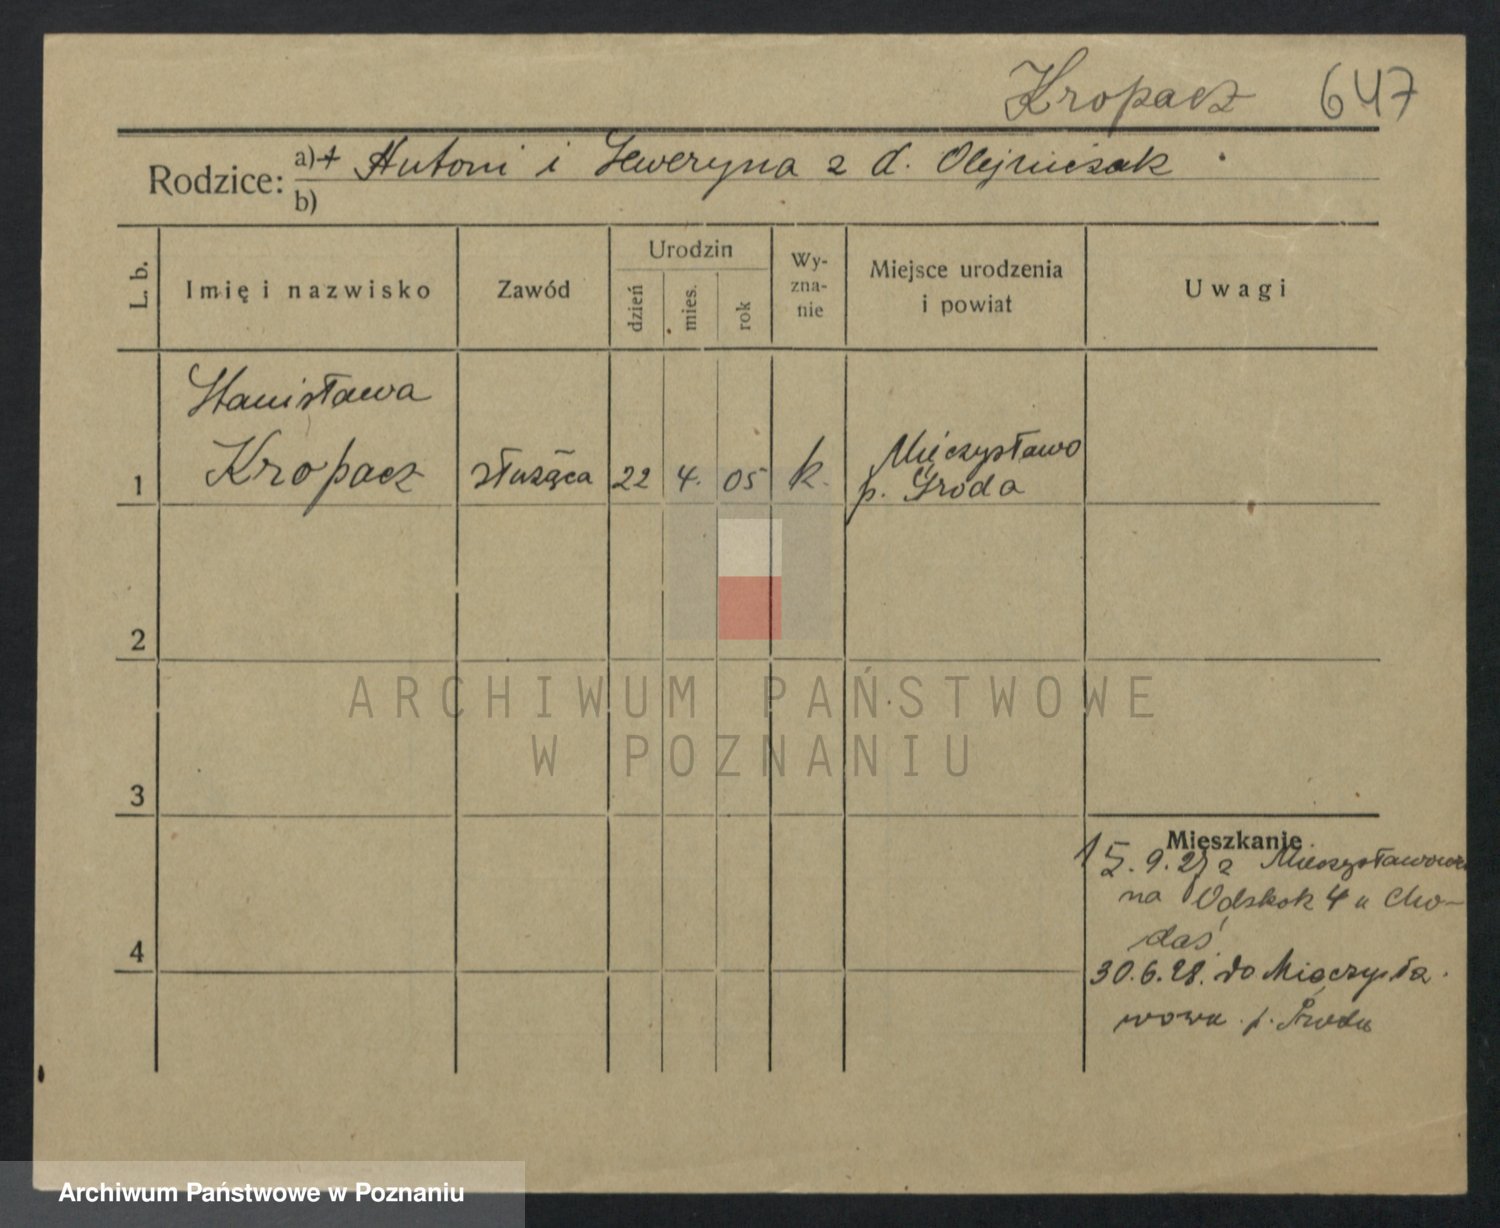 Kropacz 647
Rodzice: a) + Antoni i Seweryna z d. Olejniczak
b)
L. b.
Imię i nazwisko
Zawód
Urodzin
dzień
mies.
rok
Wy-
zna-
nie
Miejsce urodzenia
i powiat
Uwagi
Stanisława
1 Kropacz służąca 22 4. 05 k. Mięczysławo
p. Środa
2
ARCHIWUM PAŃSTWOWE
W POZNANIU
3
Mieszkanie
15.9.27 z
na Odskok 4 u Cho-
daś.
4
30.6.28. do Mięczysła-
wowa p. Środa
Archiwum Państwowe w Poznaniu